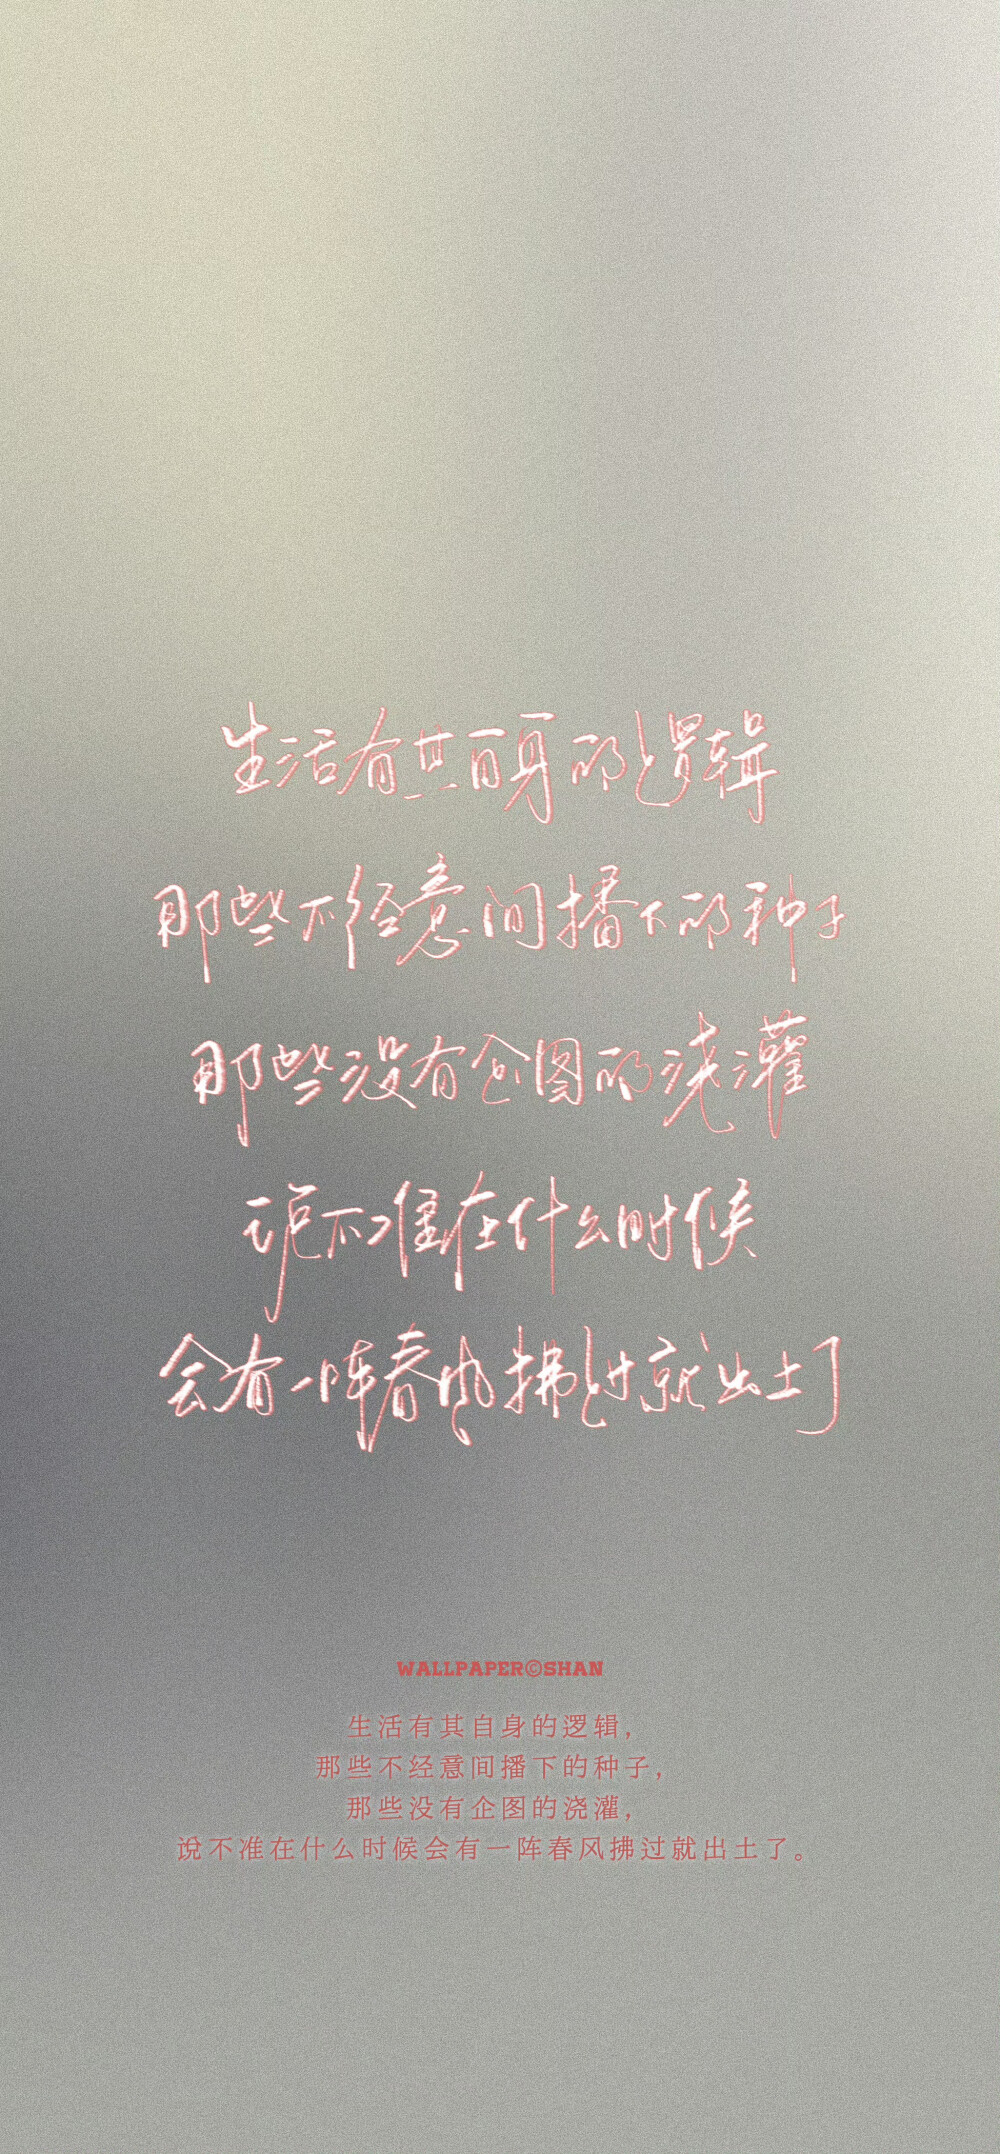 生活有其自身的逻辑
那些不经意间播下的种子
那些没有企图的浇灌
说不准在什么时候
会有一阵春风拂过就出土了
WALLPAPER©SHAN
生活有其自身的逻辑，
那些不经意间播下的种子，
那些没有企图的浇灌，
说不准在什么时候会有一阵春风拂过就出土了。